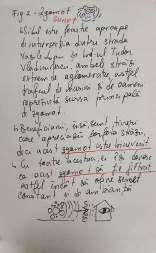 Fig 2 - Zgomot
• Situl este foarte aproape
de intersecția dintre strada
Vasile Lupu cu b-dul Tudor
Vladimirescu, ambele străzi
extrem de aglomerate, astfel
traficul de mașini și de oameni
reprezintă sursa principală
de zgomot.
• Beneficiarii, însă sunt tineri
care apreciază forfota străzii,
deci acest zgomot este binevenit
• Cu toate acestea, ei își doresc
ca acest zgomot să fie filtrat
astfel încât să ofere
constant o